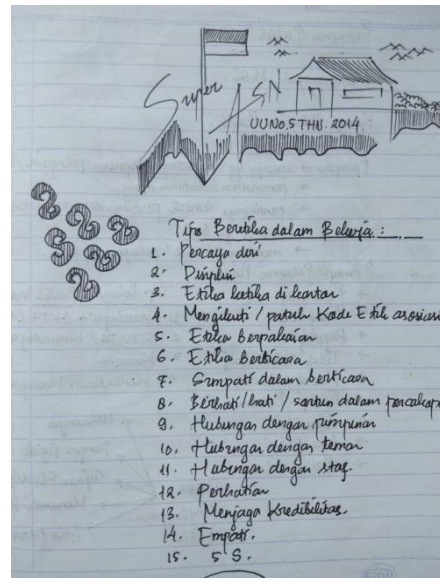 Super ASN
UU No.5 THN. 2014.
Tips Beretika dalam Bekerja :
1. Percaya diri
2. Disiplin
3. Etika ketika di kantor
4. Mengikuti / patuhi Kode Etik asosiasi
5. Etika berpakaian
6. Etika berbicara
7. Simpati dalam berbicara
8. Berhati / hati / santun dalam percakapa
9. Hubungan dengan pimpinan
10. Hubungan dengan teman
11. Hubungan dengan staf.
12. Perhatian
13. Menjaga Kredibilitas.
14. Empati.
15. 5 S.